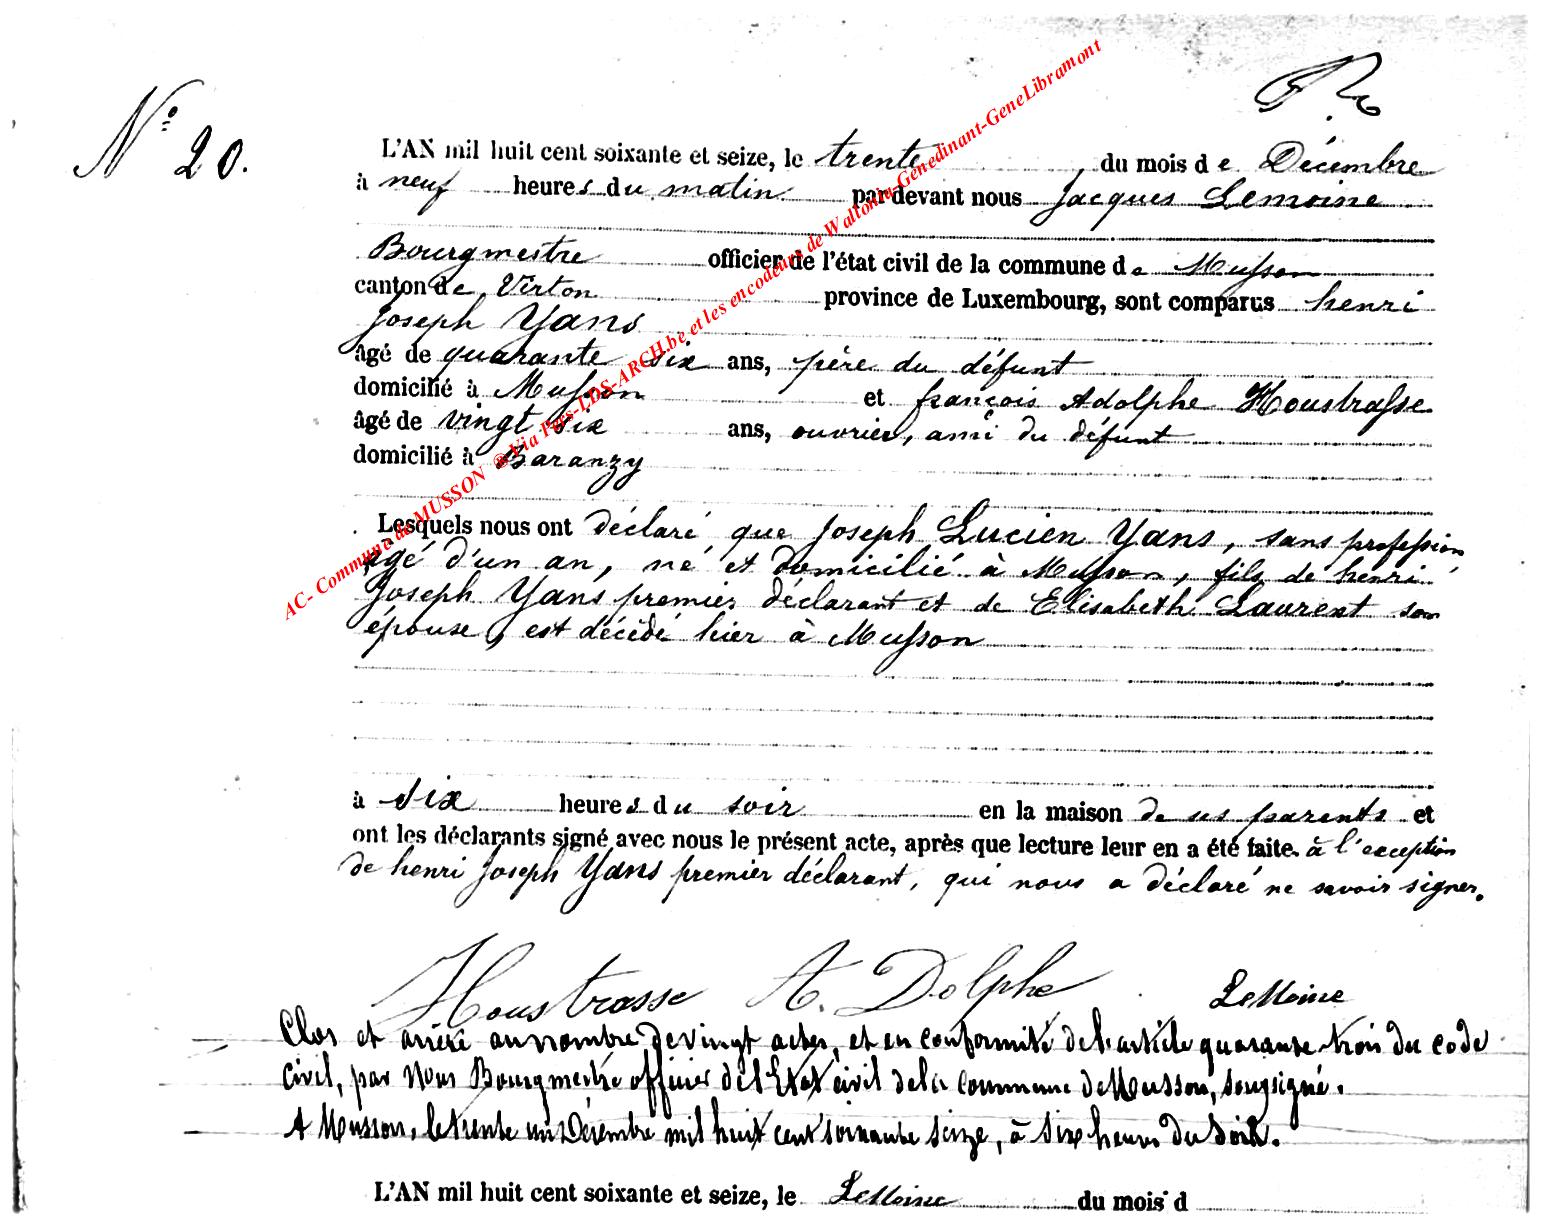 N° 20.
L'AN mil huit cent soixante et seize, le trente, du mois de Décembre
à neuf heures du matin par-devant nous Jacques Lemoine
Bourgmestre officier de l'état civil de la commune de Musson
canton de Virton province de Luxembourg, sont comparus henri
Joseph Yans
âgé de quarante six ans, père du défunt
domicilié à Musson et françois Adolphe Houstrasse
âgé de vingt six ans, ouvrier, ami du défunt
domicilié à Baranzy
Lesquels nous ont déclaré que Joseph Lucien Yans, sans profession,
âgé d'un an, né et domicilié à Musson, fils de henri
Joseph Yans premier déclarant et de Elisabeth Laurent son
épouse, est décédé hier à Musson
à six heures du soir en la maison de ses parents et
ont les déclarants signé avec nous le présent acte, après que lecture leur en a été faite. à l'exception
de henri Joseph Yans premier déclarant, qui nous a déclaré ne savoir signer.
Houstrasse A. Dolphe LeMoine
Clos et arrêté au nombre de vingt actes, et en conformité de l'article quarante trois du code
civil, par Nous Bourgmestre officier de l'Etat civil de la commune de Musson, soussigné.
A Musson, le trente un Décembre mil huit cent soixante seize, à six heures du Soir.
L'AN mil huit cent soixante et seize, le LeMoine du mois d
AC- Commune de MUSSON ®Via Pgès-LDS-ARCH.be et les encodeurs de Wallonia-Genedinant-GeneLibramont